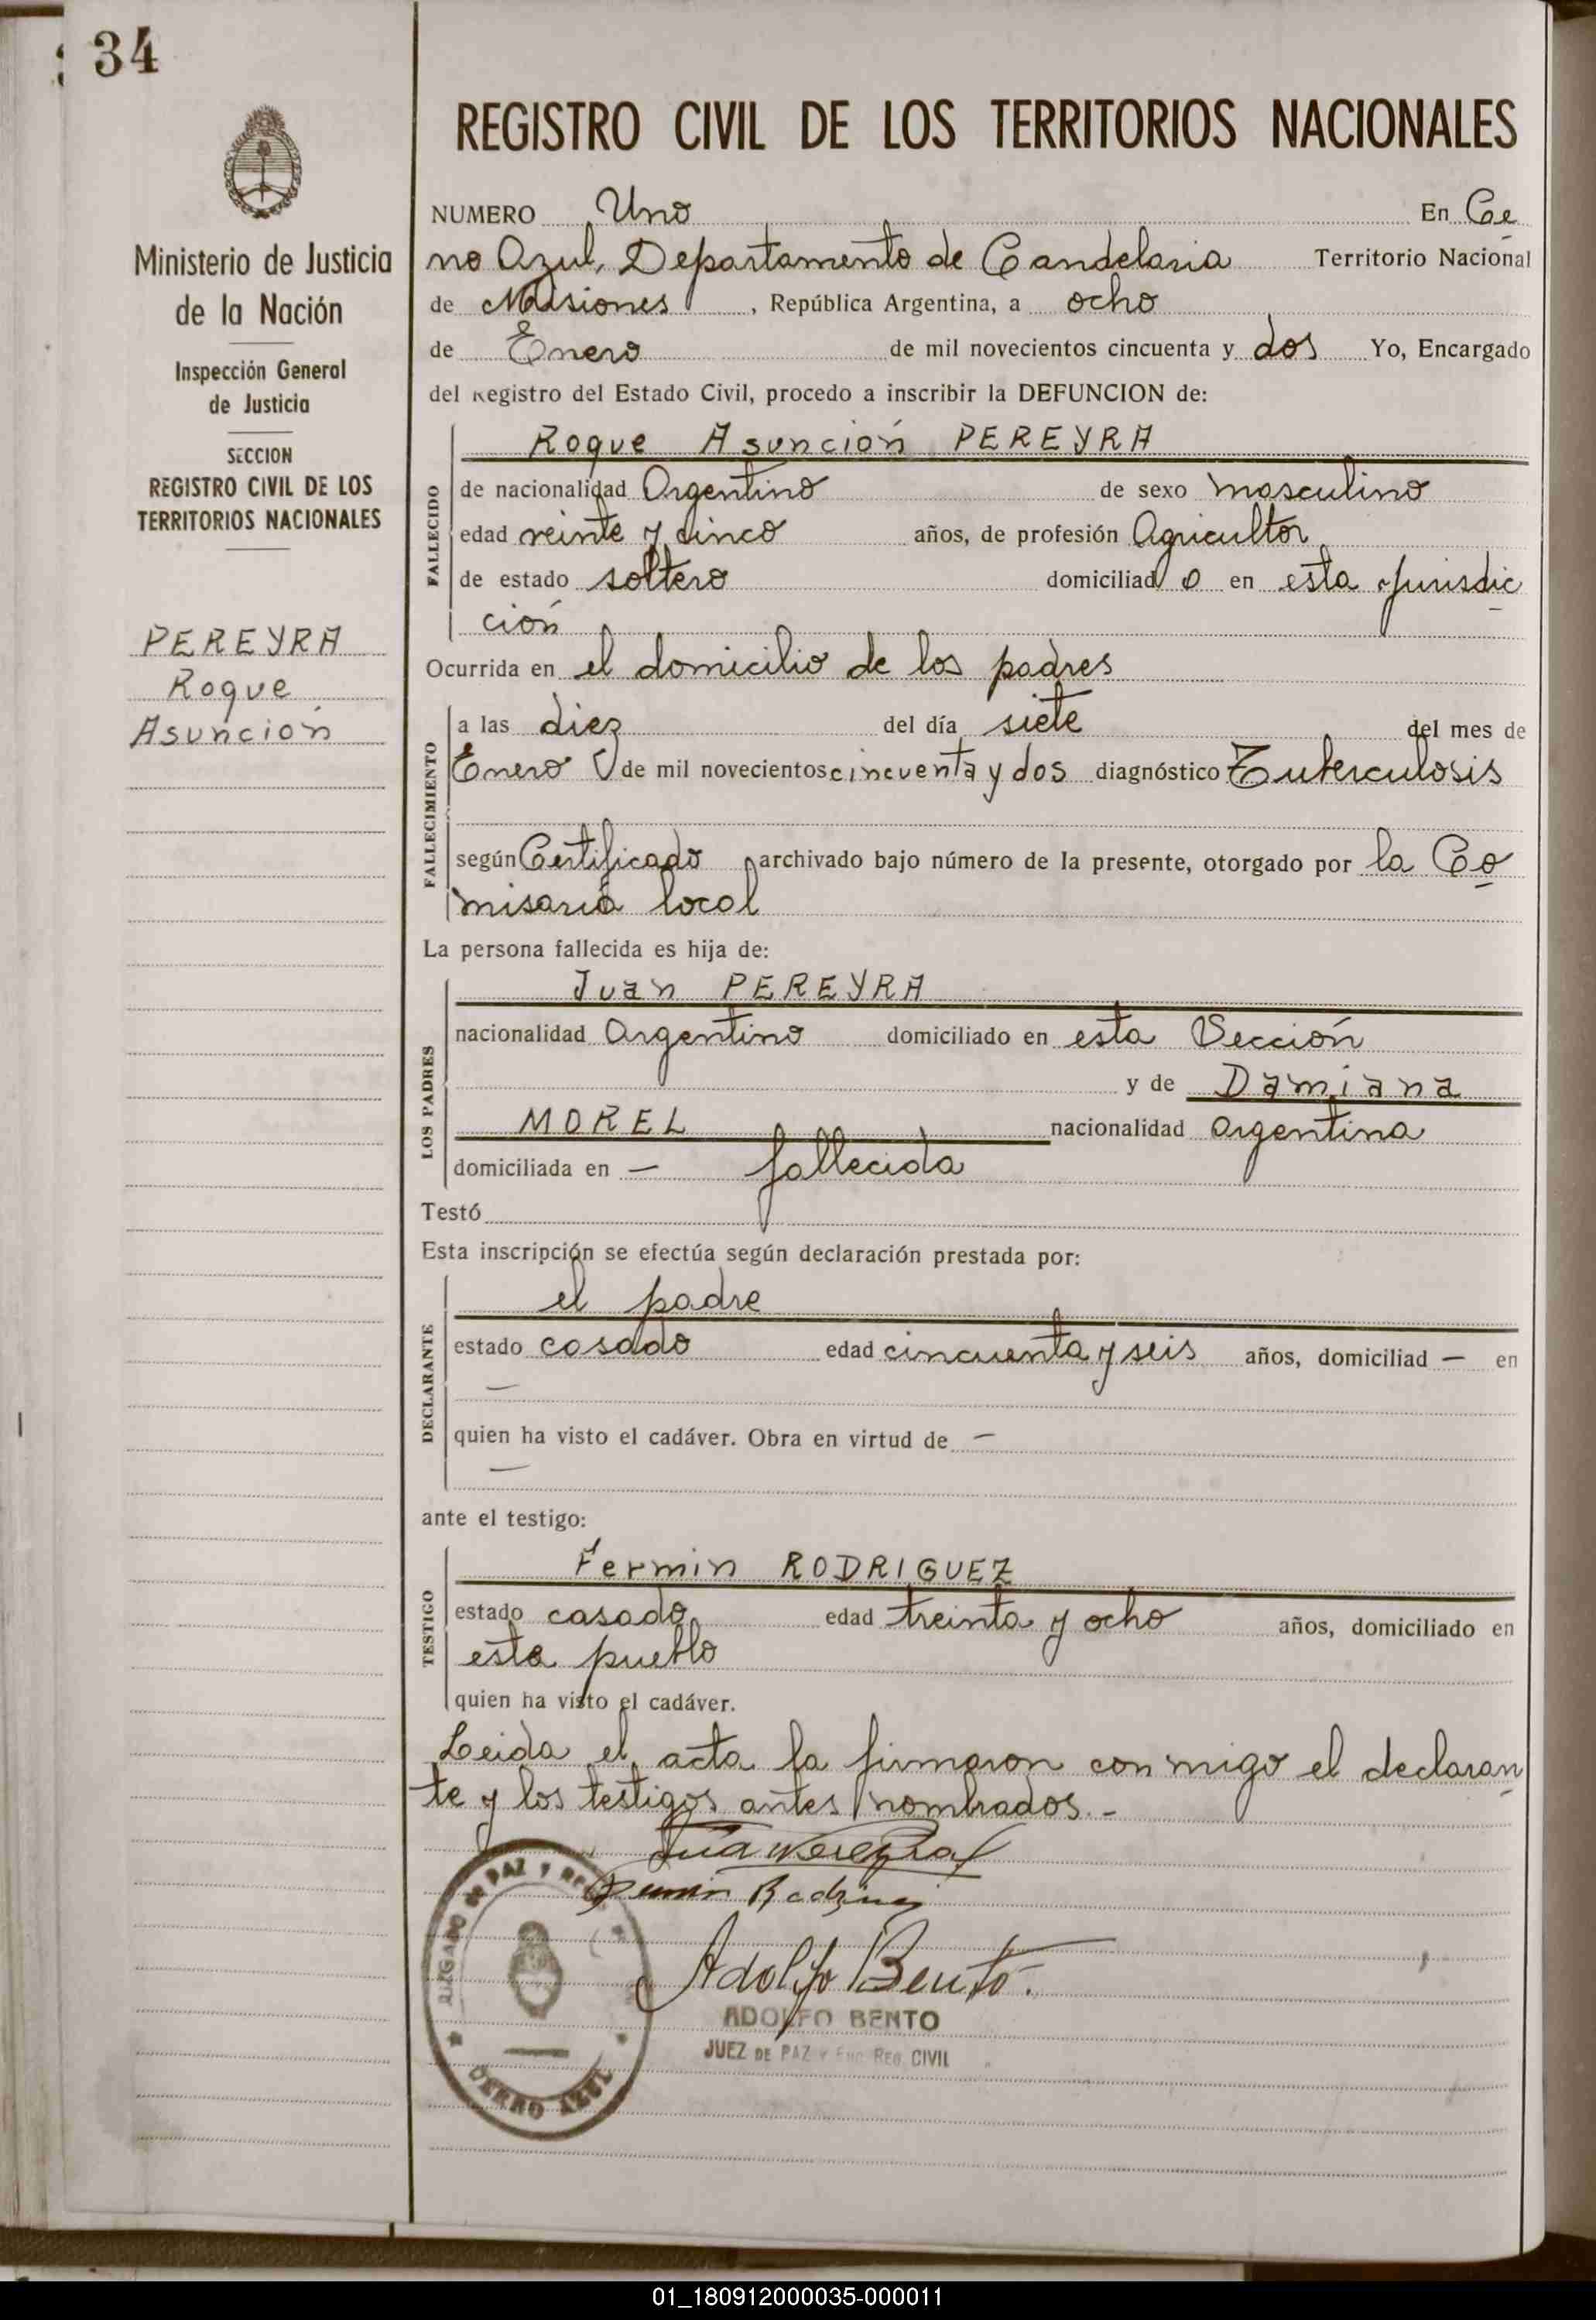 34
Ministerio de Justicia
de la Nación
Inspección General
de Justicia
SECCION
REGISTRO CIVIL DE LOS
TERRITORIOS NACIONALES
PEREYRA
Roque
Asunción
REGISTRO CIVIL DE LOS TERRITORIOS NACIONALES
NUMERO Uno En Ce
rro Azul, Departamento de Candelaria Territorio Nacional
de Misiones, República Argentina, a ocho
de Enero de mil novecientos cincuenta y dos Yo, Encargado
del Registro del Estado Civil, procedo a inscribir la DEFUNCION de:
Roque Asunción PEREYRA
FALLECIDO
de nacionalidad Argentino de sexo masculino
edad veinte y cinco años, de profesión Agricultor
de estado soltero domiciliado en esta jurisdic
ción
Ocurrida en el domicilio de los padres
FALLECIMIENTO
a las diez del día siete del mes de
Enero de mil novecientos cincuenta y dos diagnóstico Tuberculosis
según Certificado archivado bajo número de la presente, otorgado por la Co
misaria local
La persona fallecida es hija de:
LOS PADRES
Juan PEREYRA
nacionalidad Argentino domiciliado en esta Sección
y de Damiana
MOREL nacionalidad argentina
domiciliada en — fallecida
Testó
Esta inscripción se efectúa según declaración prestada por:
DECLARANTE
el padre
estado casado edad cincuenta y seis años, domiciliad — en
—
quien ha visto el cadáver. Obra en virtud de —
—
ante el testigo:
TESTIGO
Fermin RODRIGUEZ
estado casado edad treinta y ocho años, domiciliado en
este pueblo
quien ha visto el cadáver.
Leida el acta la firmaron con migo el declaran
te y los testigos antes nombrados.-
Adolfo Bento.
ADOLFO BENTO
JUEZ DE PAZ Y ENC. REG. CIVIL
JUZGADO DE PAZ Y
CERRO AZUL
01_180912000035-000011